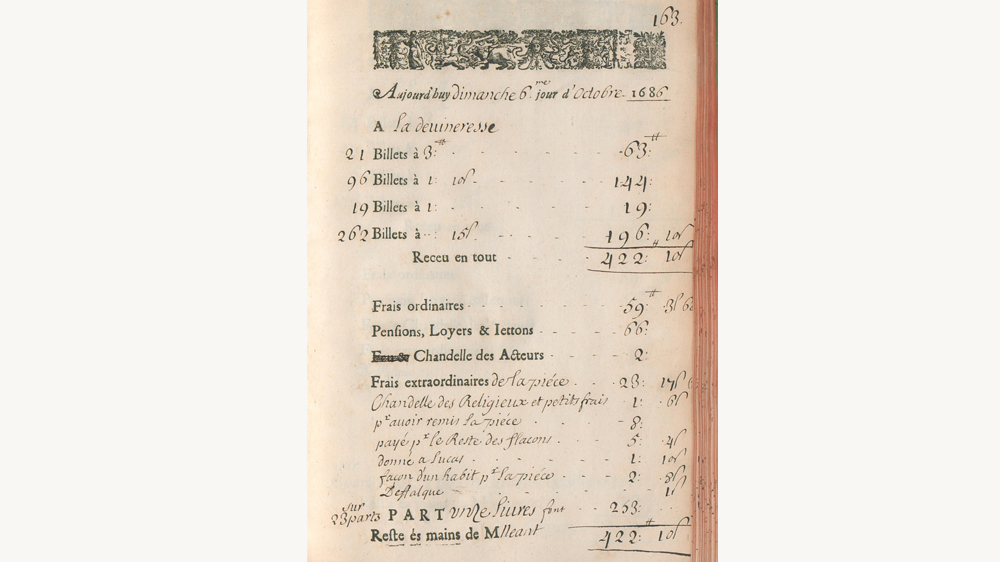 163.
Aujourd'huy dimanche 6.me jour d'Octobre 1686
A La devineresse
21 Billets à 3:tt 63:tt
96 Billets à 1: 10s 144:
19 Billets à 1: 19:
262 Billets à : 15s 196: 10s
Receu en tout 422:tt 10s
Frais ordinaires 59:tt 3s 6
Pensions, Loyers & Iettons 66:
Feu & Chandelle des Acteurs 2:
Frais extraordinaires de la piéce 23: 17s 6
Chandelle des Religieux et petits frais 1: 6s
pr avoir remis la piéce 8:
payé pr le Reste des flacons 5: 4s
donné a Lucas 1: 10s
façon d'un habit pr la piéce 2: 8s
Deffalque 1s
sur 23 parts PART unZe livres font 253:
Reste és mains de Mlleant 422:tt 10s